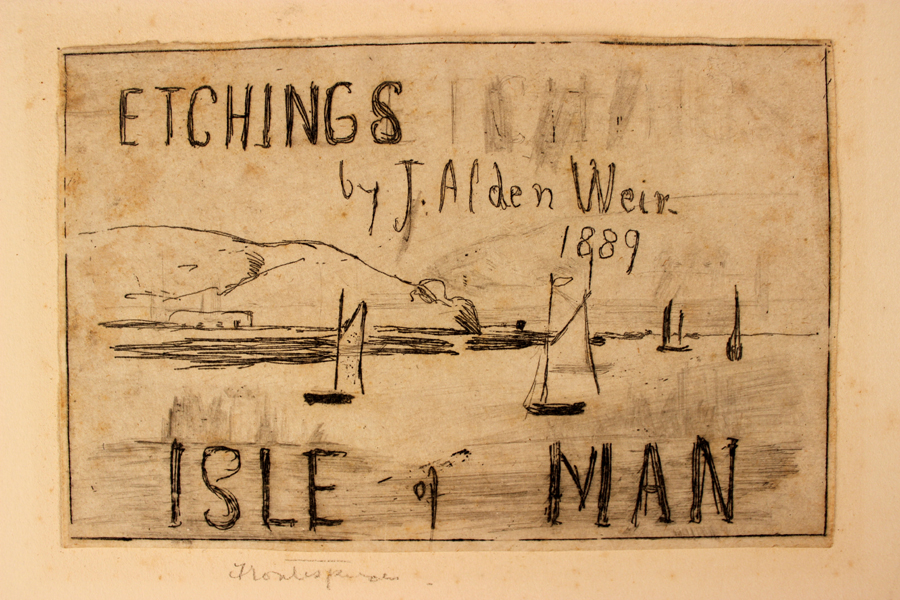 ETCHINGS
by J. Alden Weir.
1889
ISLE of MAN